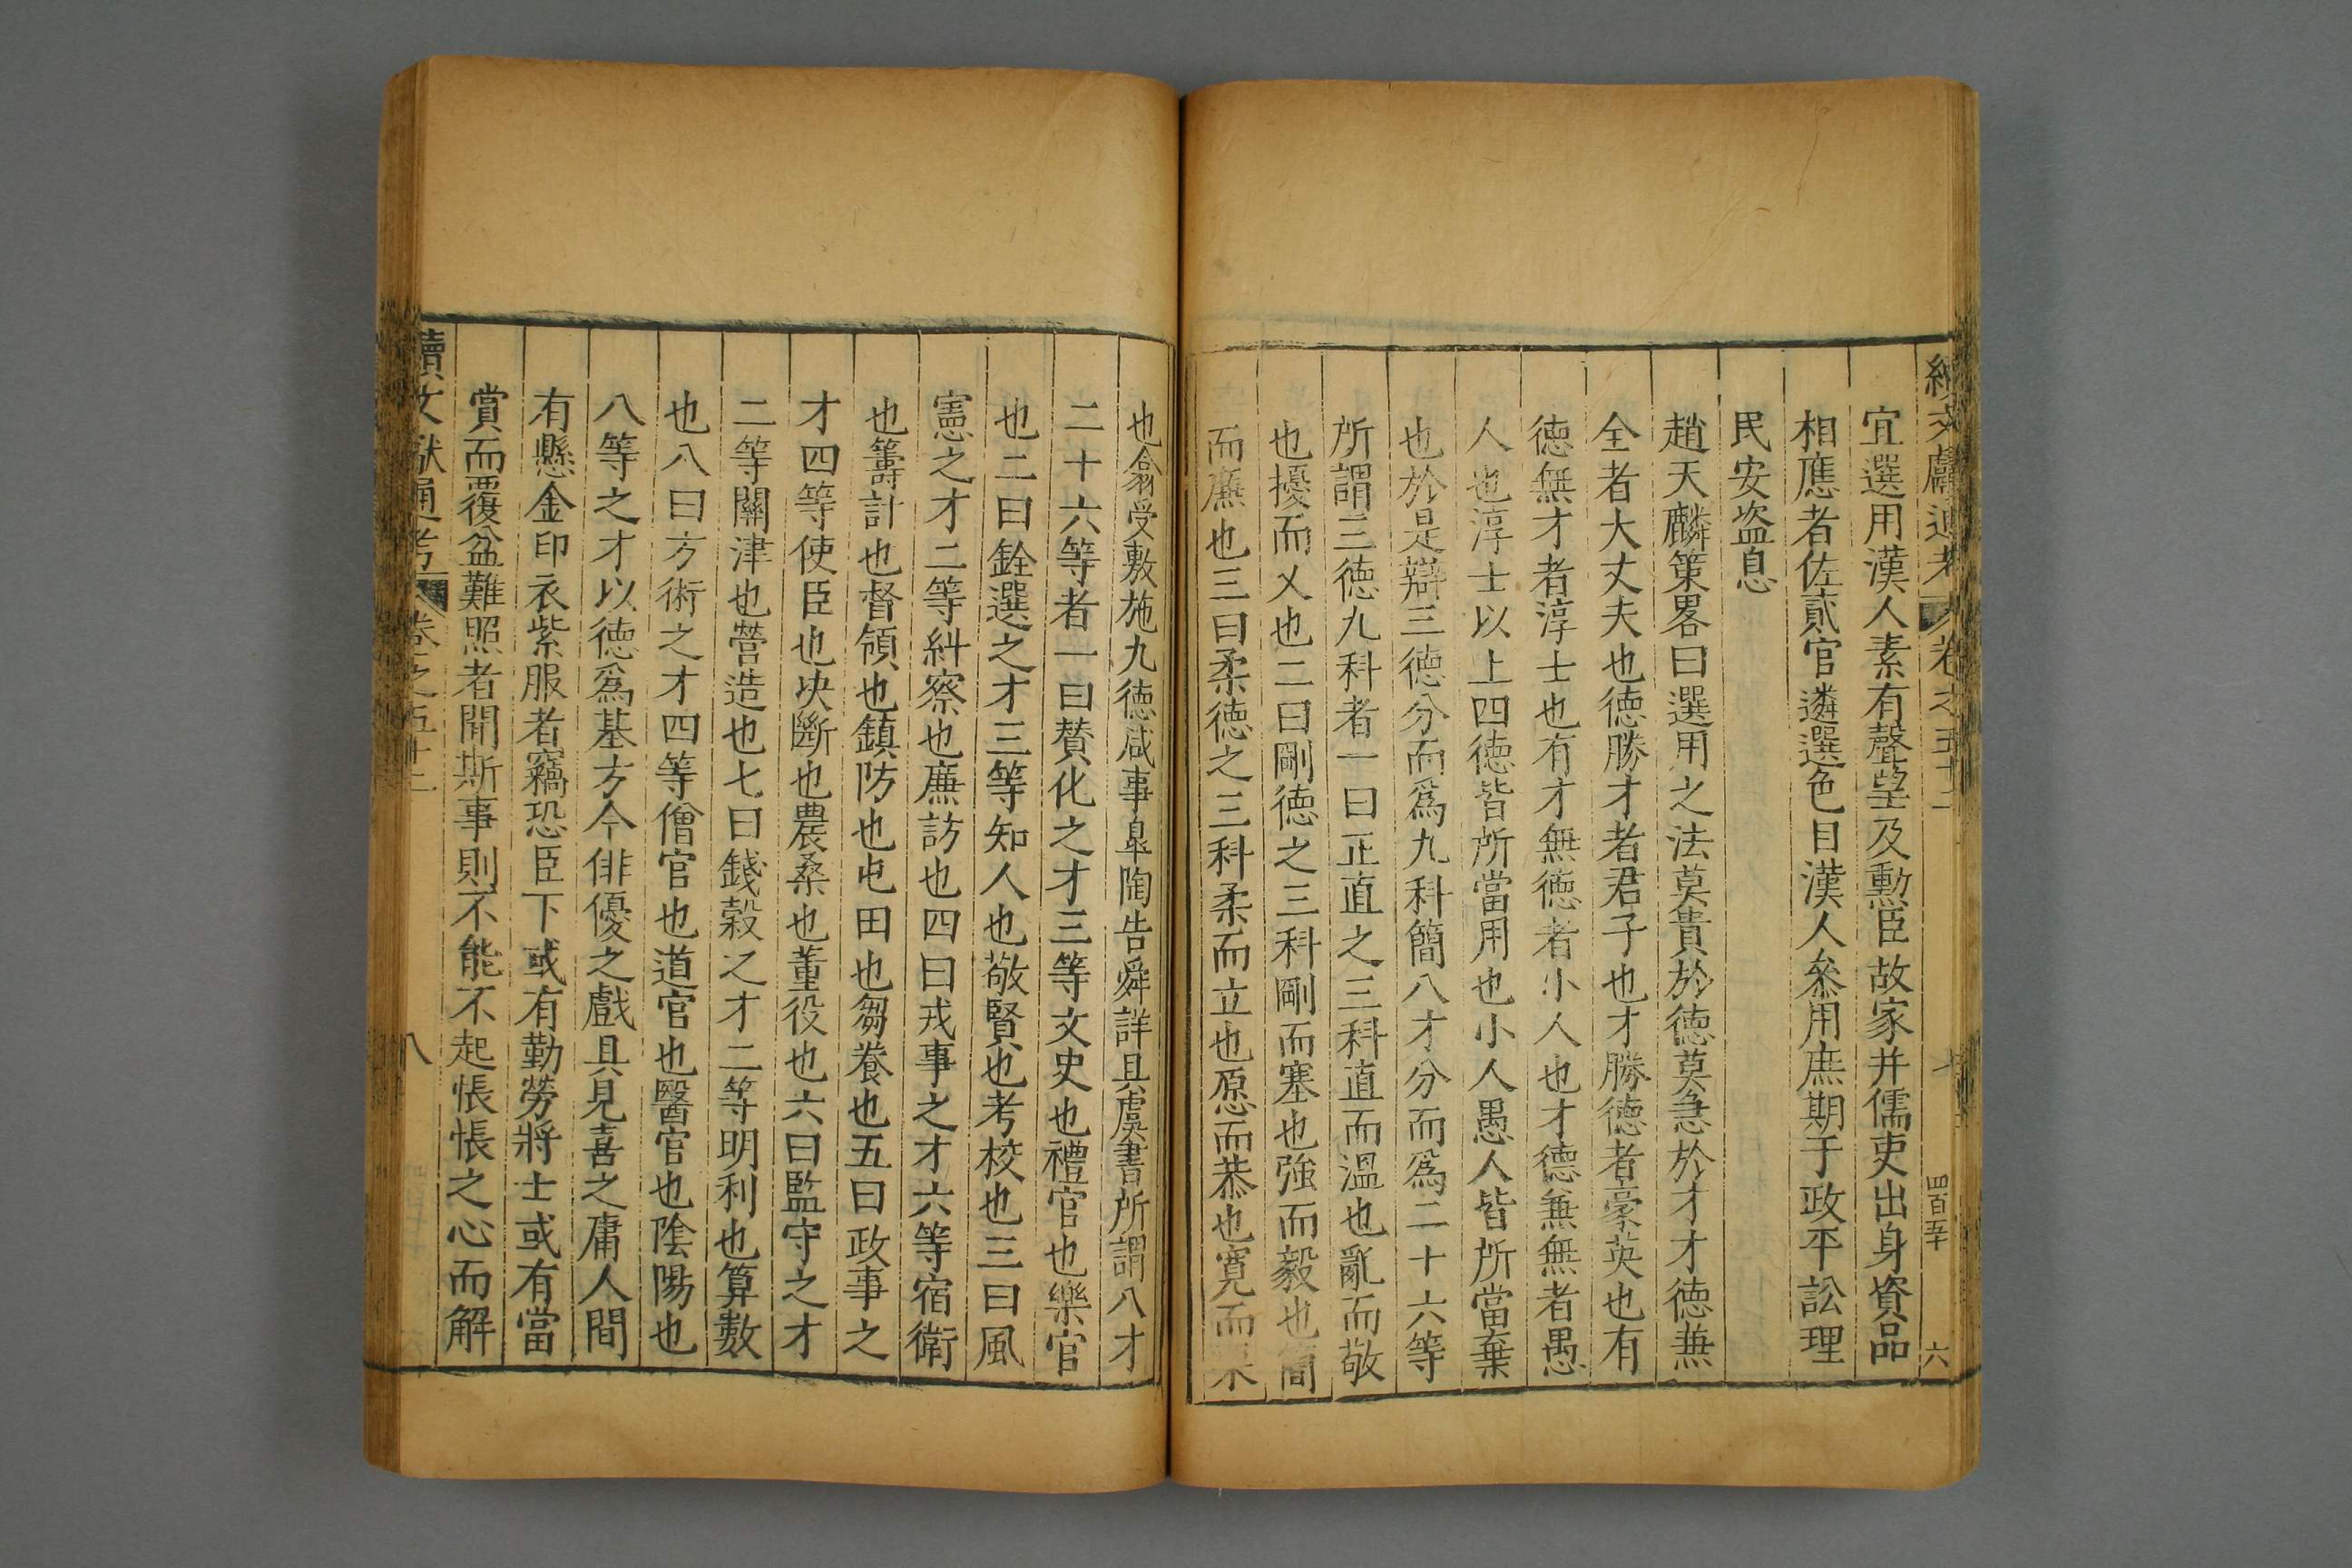 續文獻通考 卷之五十二 四百五十 六
宜選用漢人素有聲望及勳臣故家并儒吏出身資品
相應者佐貳官遴選色目漢人叅用庶期于政平訟理
民安盗息
趙天麟策畧曰選用之法莫貴於徳莫急於才才徳兼
全者大丈夫也徳勝才者君子也才勝徳者豪英也有
徳無才者淳士也有才無徳者小人也才德兼無者愚
人也淳士以上四徳皆所當用也小人愚人皆所當棄
也於是辯三徳分而爲九科簡八才分而爲二十六等
所謂三徳九科者一曰正直之三科直而溫也亂而敬
也擾而乂也二曰剛徳之三科剛而塞也強而毅也簡
而廉也三曰柔徳之三科柔而立也愿而恭也寛而栗
也翕受敷施九徳咸事臯陶告舜詳且虞書所謂八才
二十六等者一曰賛化之才三等文史也禮官也樂官
也二曰銓選之才三等知人也敬賢也考校也三曰風
憲之才二等糾察也廉訪也四曰戎事之才六等宿衛
也籌計也督領也鎮防也屯田也芻養也五曰政事之
才四等使臣也决斷也農桑也董役也六曰監守之才
二等關津也營造也七曰錢糓之才二等明利也算數
也八曰方術之才四等僧官也道官也醫官也陰陽也
八等之才以徳爲基方今俳優之戲具見喜之庸人間
有懸金印衣紫服者竊恐臣下或有勤勞將士或有當
賞而覆盆難照者聞斯事則不能不起悵悵之心而解
續文獻通考 卷之五十二 八